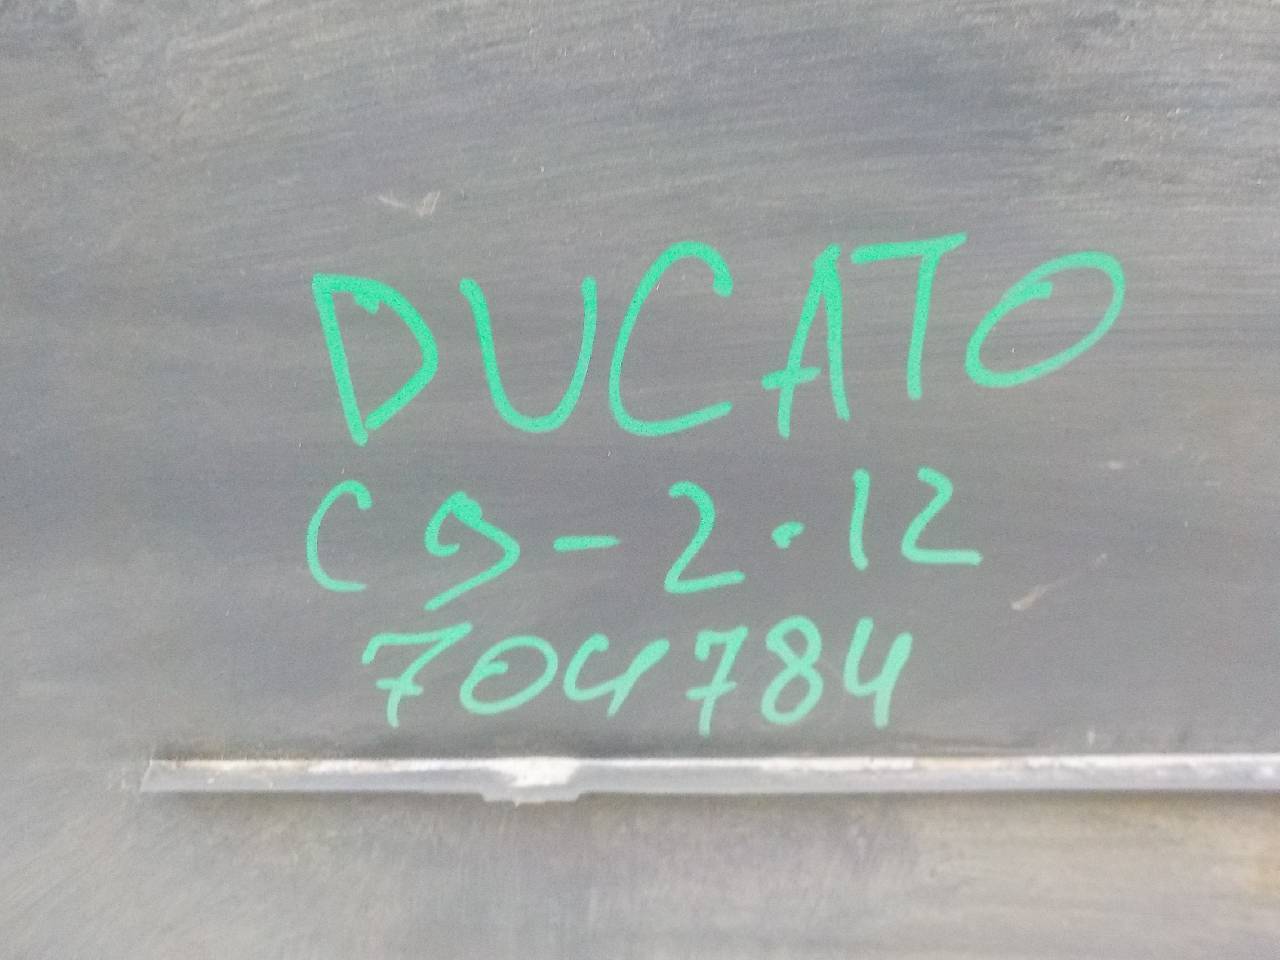 DUCATO
C9-2.12
704784